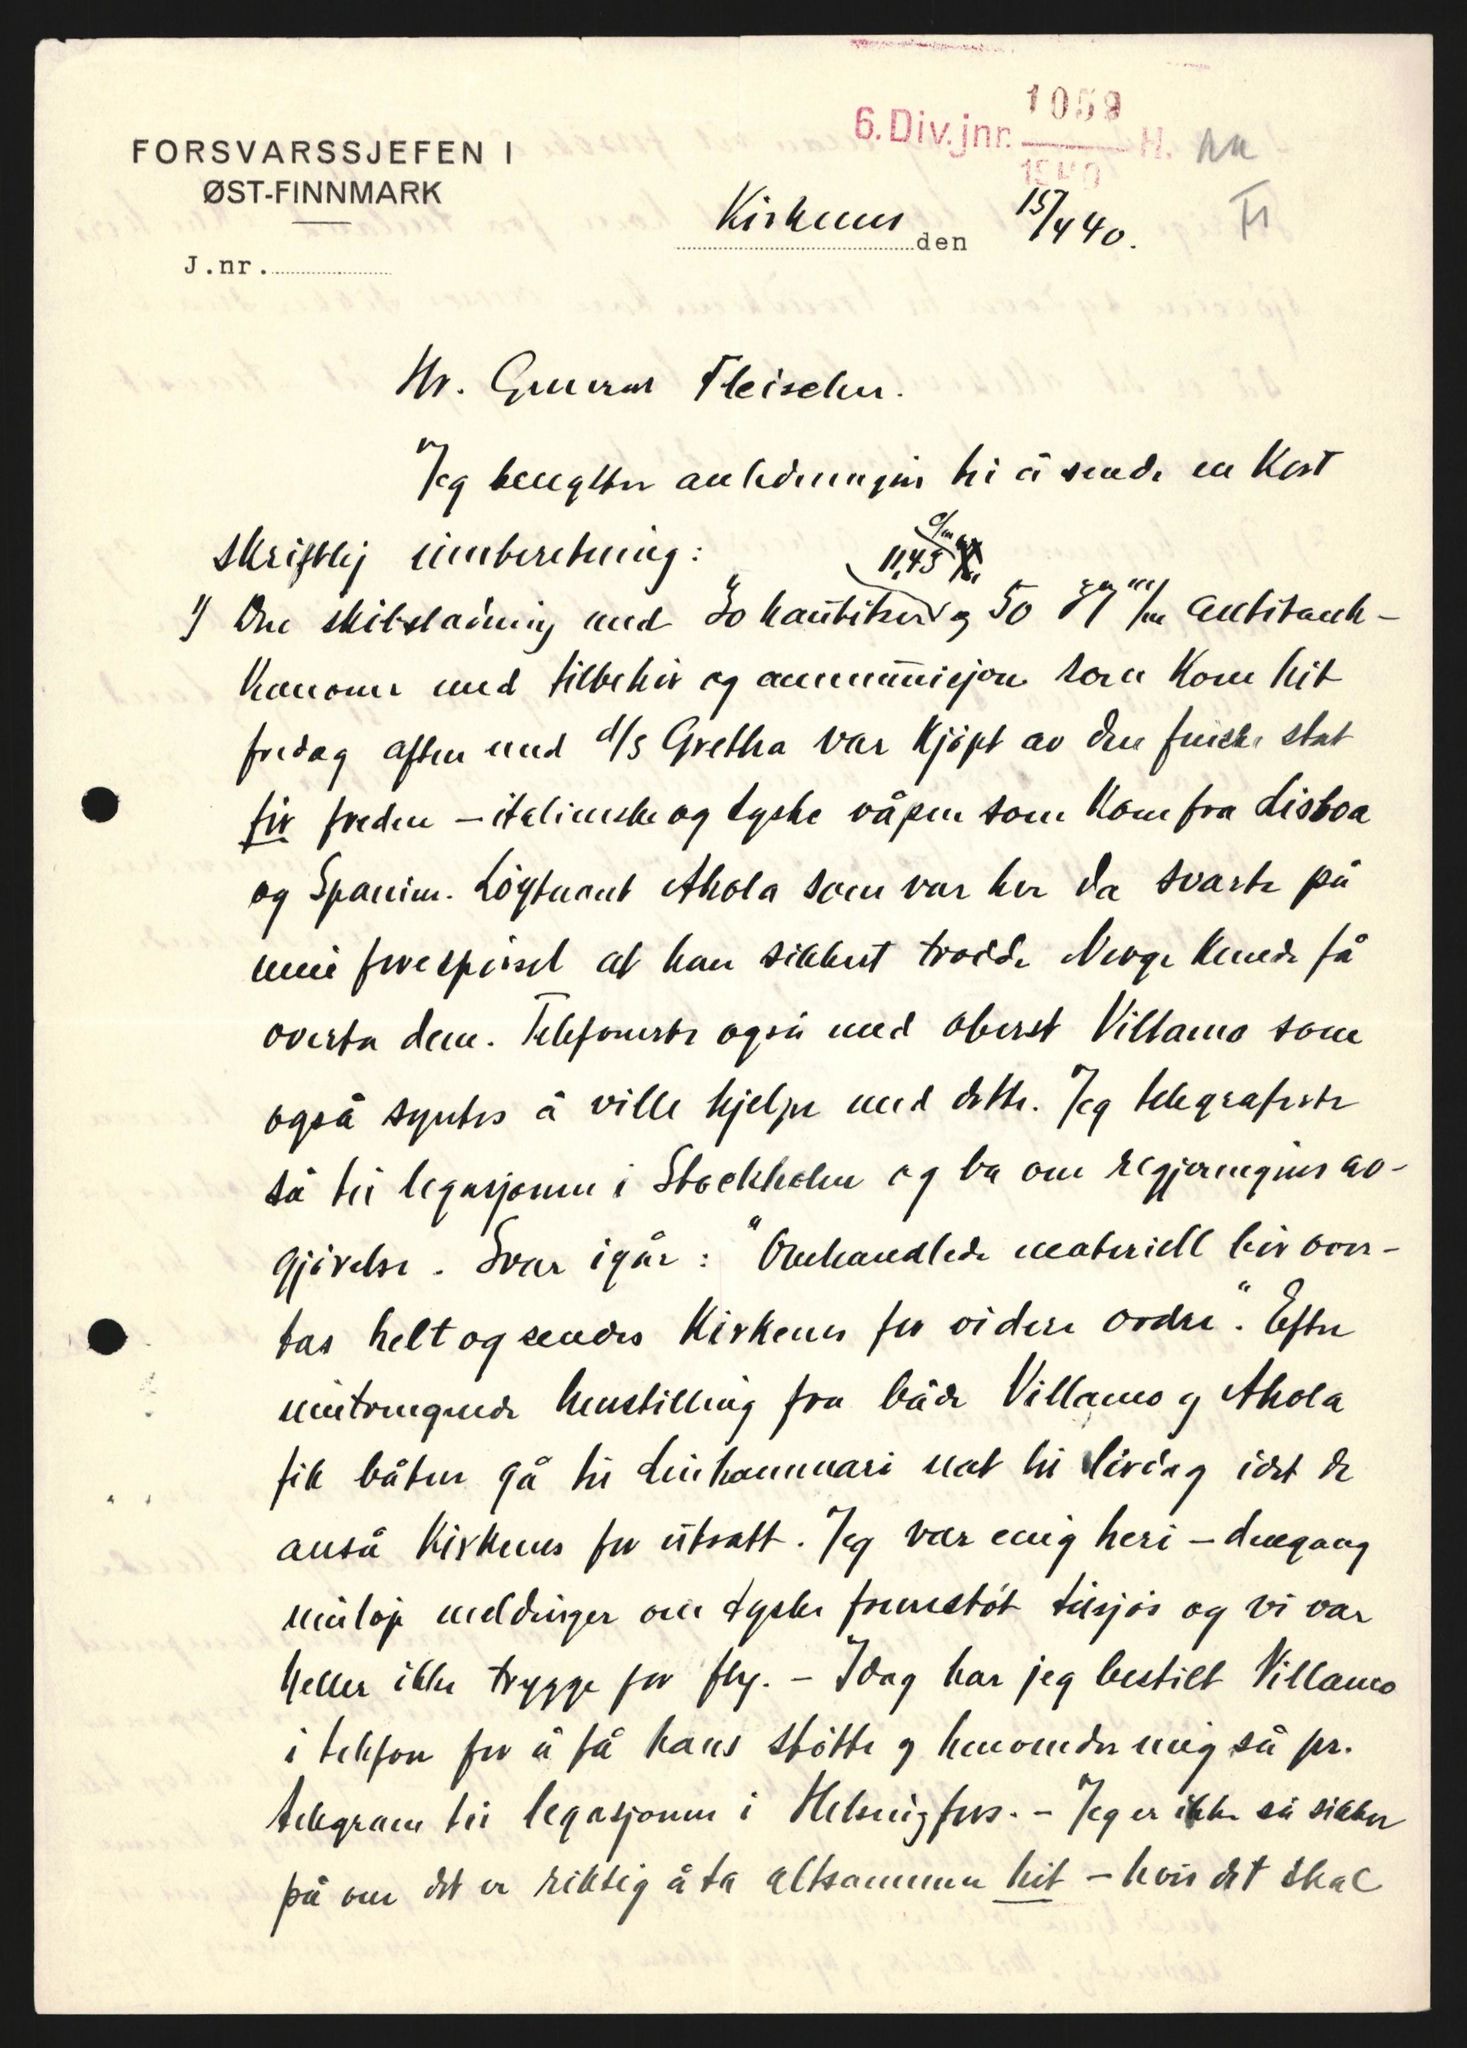 6. Div. jnr. 1059 H.
1940
FORSVARSSJEFEN I
ØST-FINNMARK
Kirkenes den 15/4 40.
J.nr.
Hr. General Fleischer.
Jeg benytter anledningen til å sende en kort
skriftlig innberetning:
11,45 c/m
1) Den skibsladning med 30 haubitser og 50 37 m/m antitank-
kanoner med tilbehör og ammunisjon som kom hit
fredag aften med d/s Gretha var kjöpt av den finske stat
för freden – italienske og tyske våpen som kom fra Lisboa
og Spanien. Löytnant Ahola som var her da svarte på
min forespörsel at han sikkert trodde Norge kunde få
overta dem. Telefonerte også med oberst Villamo som
også syntes å ville hjelpe med dette. Jeg telegraferte
så til legasjonen i Stockholm og ba om regjeringens av-
gjörelse. Svar igår: "Omhandlede materiell bör over-
tas helt og sendes Kirkenes for videre ordre". Efter
inntrengende henstilling fra både Villamo og Ahola
fik båten gå til Liinhammari nat til lördag idet de
anså Kirkenes for utsatt. Jeg var enig heri – dengang
innlöp meldinger om tyske fremstöt tilsjös og vi var
heller ikke trygge for fly. – Idag har jeg bestilt Villamo
i telefon for å få hans stötte og henvender mig så pr.
telegram til legasjonen i Helsingfors. – Jeg er ikke så sikker
på om det er riktig å ta altsammen hit – hvis det skal